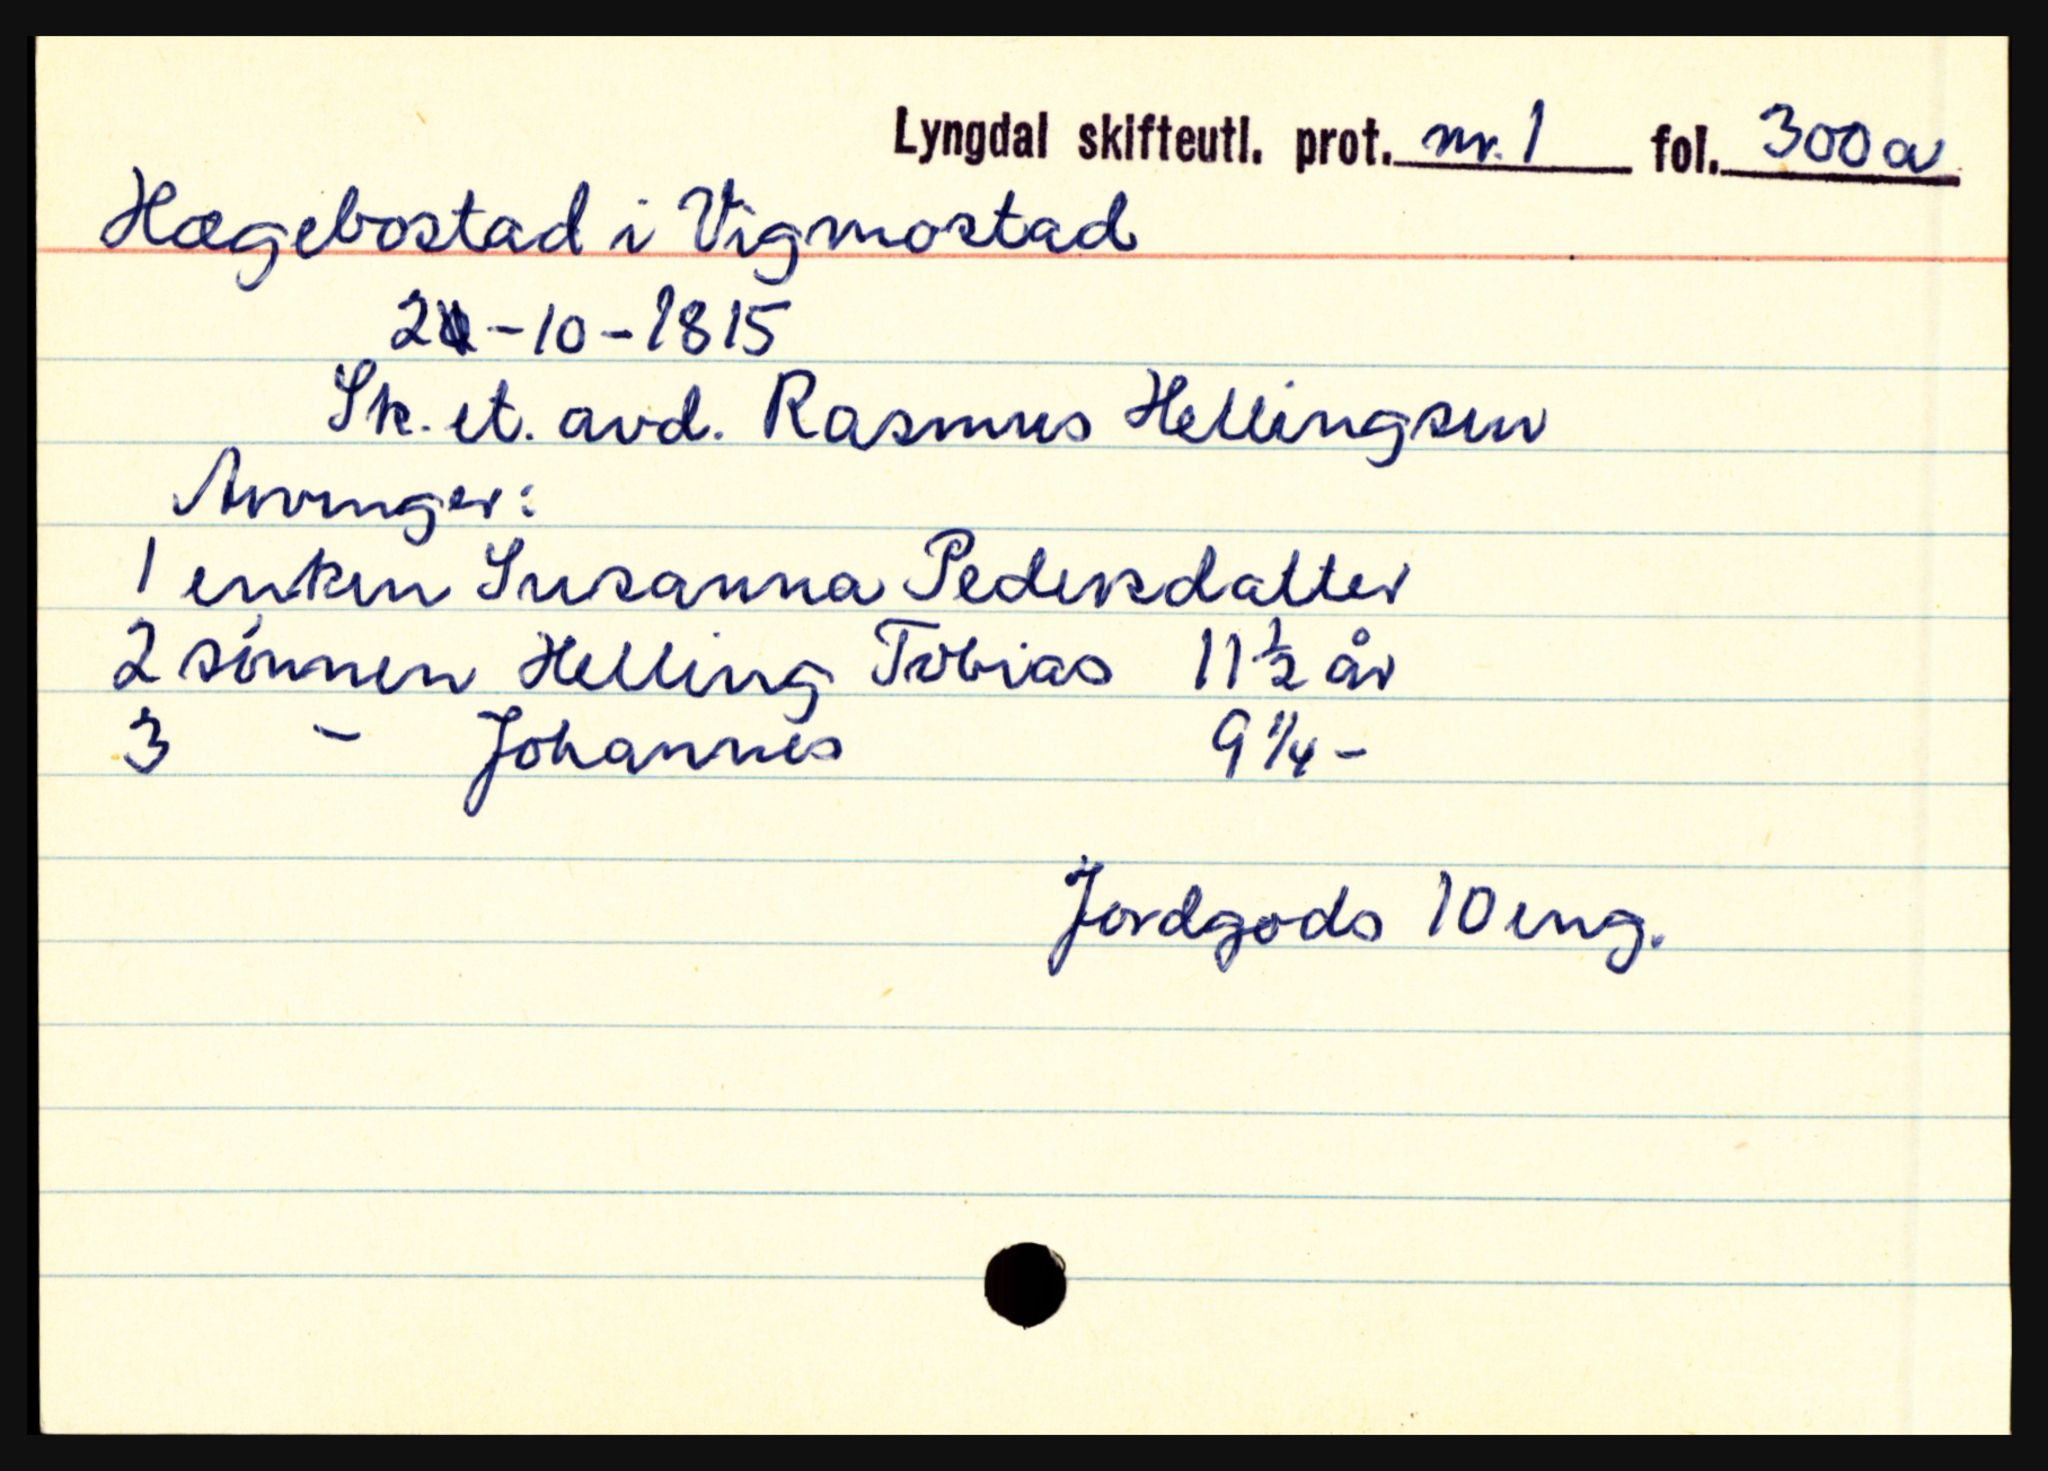 Lyngdal skifteutl. prot. nr. 1 fol. 300a
Hægebostad i Vigmostad
-10-1815
Sk. et. avd. Rasmus Hellingsen
Arvinger:
1 enken Susanna Pedersdatter
2 sønnen Helling Tobias 11 1/2 år
3 - Johannes 9 1/4 -
Jordgods 10 eng.